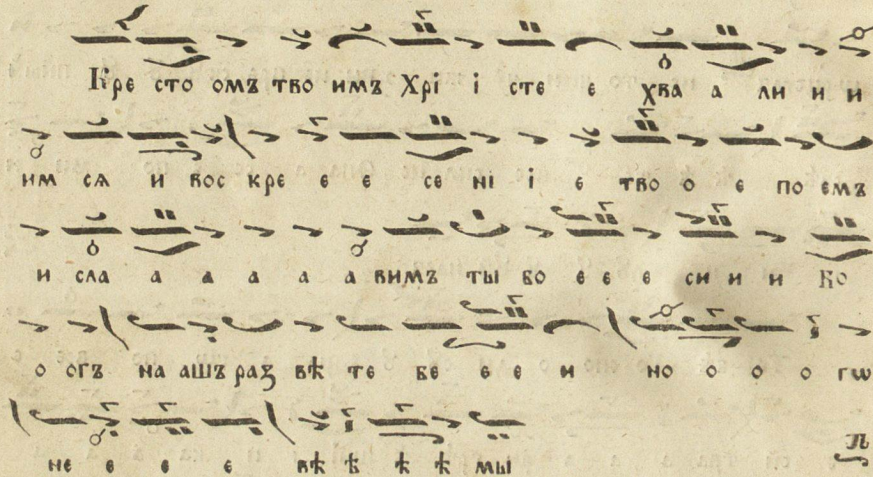 Кре сто омъ тво имъ Хрі і сте е хва а ли и и
им сѧ и вос кре е е се ні і е тво о е по емъ
и сла а а а а а вимъ ты бо е е е си и и Бо
о огъ на ашъ раз вѣ те бе е е и но о о о гѡ
не е е е вѣ ѣ ѣ ѣ мы